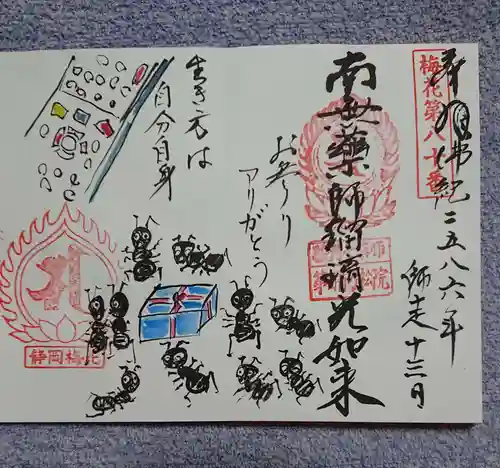 梅花第八十番
奉拝
佛紀二五八六年
師走十三日
南無薬師瑠璃光如来
お参り
アリがとう
生き方は
自分自身
静岡梅花